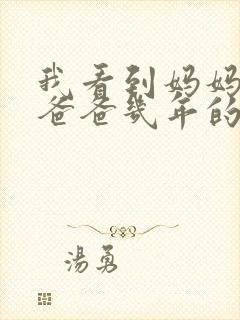 我看到妈妈
爸爸几年的
湯勇